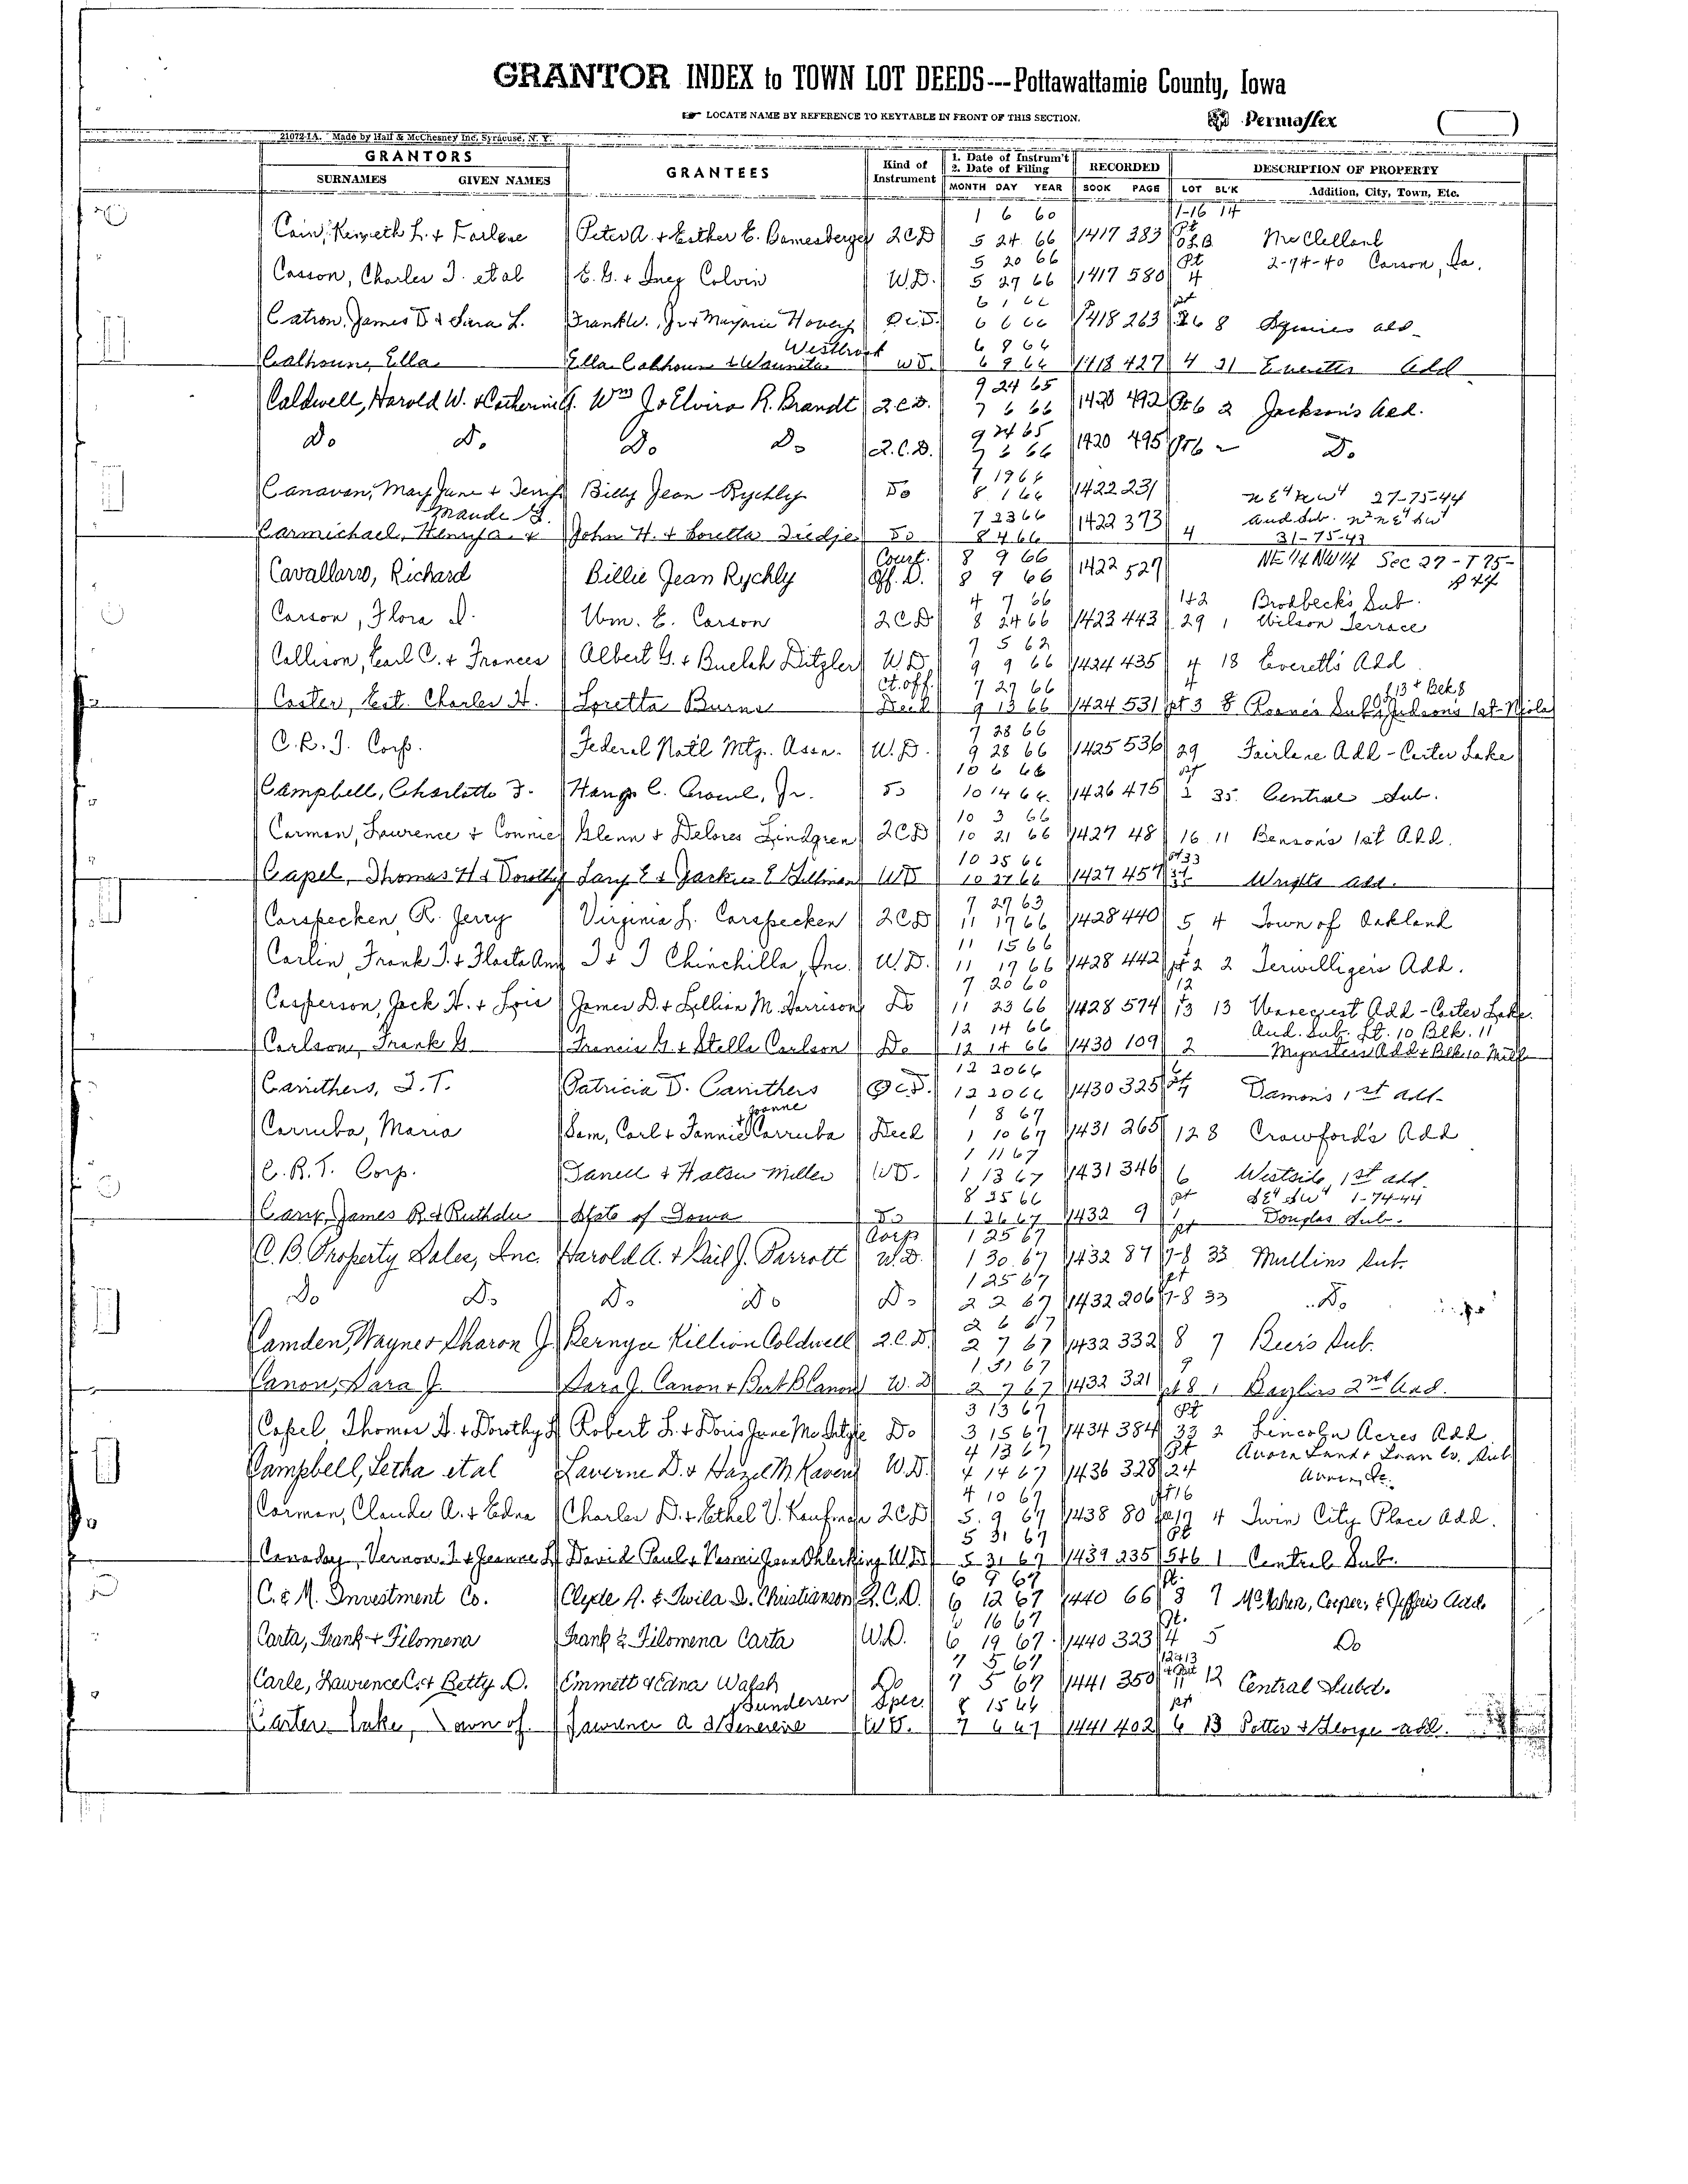 GRANTOR INDEX to TOWN LOT DEEDS---Pottawattamie County, Iowa
LOCATE NAME BY REFERENCE TO KEYTABLE IN FRONT OF THIS SECTION.
Permaflex
21072-1A. Made by Hall & McChesney Inc. Syracuse, N. Y.
GRANTORS
SURNAMES GIVEN NAMES
GRANTEES
Kind of Instrument
1. Date of Instrum't
2. Date of Filing
MONTH DAY YEAR
RECORDED
BOOK PAGE
DESCRIPTION OF PROPERTY
LOT BL'K Addition, City, Town, Etc.
1 6 60 1-16 14
Cain, Kenneth L. + Earlene Peter A. + Esther E. Bamesberger 2CD 5 24 66 1417 283 McClelland
5 20 66 Pt 2-74-40 Carson, Ia.
Casson, Charles J. et al E. G. + Inez Colvin W.D. 5 27 66 1417 580 4
6 1 66 pt
Catron, James D & Sara L. Frank W., Jr + Marjorie Hovey QCD 6 6 66 1418 263 26 8 Squires add-
Westbrook 6 8 66
Calhoun, Ella Ella Calhoun & Waunita WD. 6 9 66 1418 427 4 31 Everetts Add
9 24 65
Caldwell, Harold W. + Catherine G. Wm J + Elvira R. Brandt 2CD. 7 6 66 1420 492 Pt 6 2 Jackson's Add.
9 24 65
Do Do Do Do Q.C.D. 7 6 66 1420 495 Pt 6 2 Do
7 19 66
Canavan, Mary Jane + Billy Jean Rychly Do 8 1 66 1422 231 NE4 NW4 27-75-44
Maude B. 7 23 66 Aud Sub. N2 NE4 SW4
Carmichael, Henry A. + John H. + Loretta Do 8 4 66 1422 373 4 31-75-43
Court. 8 9 66 NE 1/4 NW 1/4 Sec 27 - T75-
Cavallaro, Richard Billie Jean Rychly Off. D. 8 9 66 1422 527 R 44
4 7 66 142 Brodbeck's Sub.
Carson, Flora D. Wm. E. Carson 2CD 8 24 66 1423 443 29 1 Wilson Terrace
7 5 62
Collison, Earl C. + Frances Albert G. + Buelah Ditzler WD 9 9 66 1424 435 4 18 Everett's Add
Ct. off. 7 27 66 L13 + Blk 8
Caster, Est. Charles H. Loretta Burns Deed 9 13 66 1424 531 pt 3 8
7 28 66
C.R.J. Corp. Federal Nat'l Mtg. Assn. W.D. 9 28 66 1425 536 29 Fairlane Add - Carter Lake
10 6 66 pt
Campbell, Charlotte F. C. Jr. Do 10 14 66 1426 475 2 35 Central Sub.
10 3 66
Carman, Laurence + Connie Glenn + Delores Lindgren 2CD 10 21 66 1427 48 16 11 Benson's 1st Add.
10 25 66 pt 33
Capel, Thomas H & Dorothy Gary E + Jackie E WD 10 27 66 1427 457 Wrights Add.
7 27 63
Carspecken, R. Jerry Virginia L. Carspecken 2CD 11 17 66 1428 440 5 4 Town of Oakland
11 15 66
Carlin, Frank J. + I + J Chinchilla, Inc. W.D. 11 17 66 1428 442 pt 2 2 Terwilligers Add.
7 20 60 12
Casperson, Jack H. + Lois James D. + Lillian M. Harrison Do 11 23 66 1428 574 13 13 Wavecrest Add - Carter Lake.
12 14 66 Aud. Sub. Lt. 10 Blk. 11
Carlson, Frank G. Francis G. + Stella Carlson Do 12 14 66 1430 109 2 Mynsters Add + Blk 10 Mill
12 20 66
Caruthers, J. T. Patricia D. Caruthers QCD. 12 20 66 1430 325 Damon's 1st add-
+ Joanne 1 8 67
Carruba, Maria Sam, Carl + Fannie Carruba Deed 1 10 67 1431 265 12 8 Crawford's Add
1 11 67
C.R.T. Corp. Miller WD. 1 13 67 1431 346 6 Westside 1st add.
8 25 66 pt SE4 SW4 1-74-44
James R & State of Iowa Do 1 26 67 1432 9 1 Douglas Sub.
Corp 1 25 67 pt
C.B. Property Sales, Inc. Harold A. + Gail J. Parrott W.D. 1 30 67 1432 87 7-8 33 Mullins Sub.
1 25 67 pt
Do Do Do Do Do 2 2 67 1432 206 7-8 33 Do
2 6 67
Camden, Wayne + Sharon J. Bernyce Killion Coldwell 2.C.D. 2 7 67 1432 332 8 7 Beers Sub.
1 31 67 9
Canon, Sara J. Sara J. Canon + Bert B Canon W.D 2 7 67 1432 321 pt 8 1 Bayliss 2nd Add.
3 13 67 Pt
Capel, Thomas H. + Dorothy Robert L. + Doris Jane Do 3 15 67 1434 384 33 2 Lincoln Acres Add
4 13 67 Pt Avoca Land + Loan Co. Sub
Campbell, Letha et al Laverne D. + Hazel M Ravens W.D. 4 14 67 1436 328 24
4 10 67 Pt 16
Carman, Claude A. + Edna Charles D. + Ethel V. Kaufman 2CD 5 9 67 1438 80 4 Twin City Place Add.
5 31 67 Pt
Canaday, Vernon I. + Jeanne David Paul + Ohlerking WD 5 31 67 1439 235 5+6 1 Central Sub.
6 9 67 Pt.
C. & M. Investment Co. Clyde A. & Twila D. Christianson Q.C.D. 6 12 67 1440 66 3 7 McMahon, Cooper, & Jefferis Add.
6 16 67 Pt.
Carta, Frank + Filomena Frank & Filomena Carta W.D. 6 19 67 1440 323 4 5 Do
7 5 67 12 + 13
Carle, Lawrence C. + Betty D. Emmett & Edna Walsh Do 7 5 67 1441 350 11 12 Central Subd.
Gundersen Spec. 8 15 66 pt
Carter Lake, Town of. Lawrence A & Genevieve WD. 7 6 67 1441 402 6 13 Potter & George add.